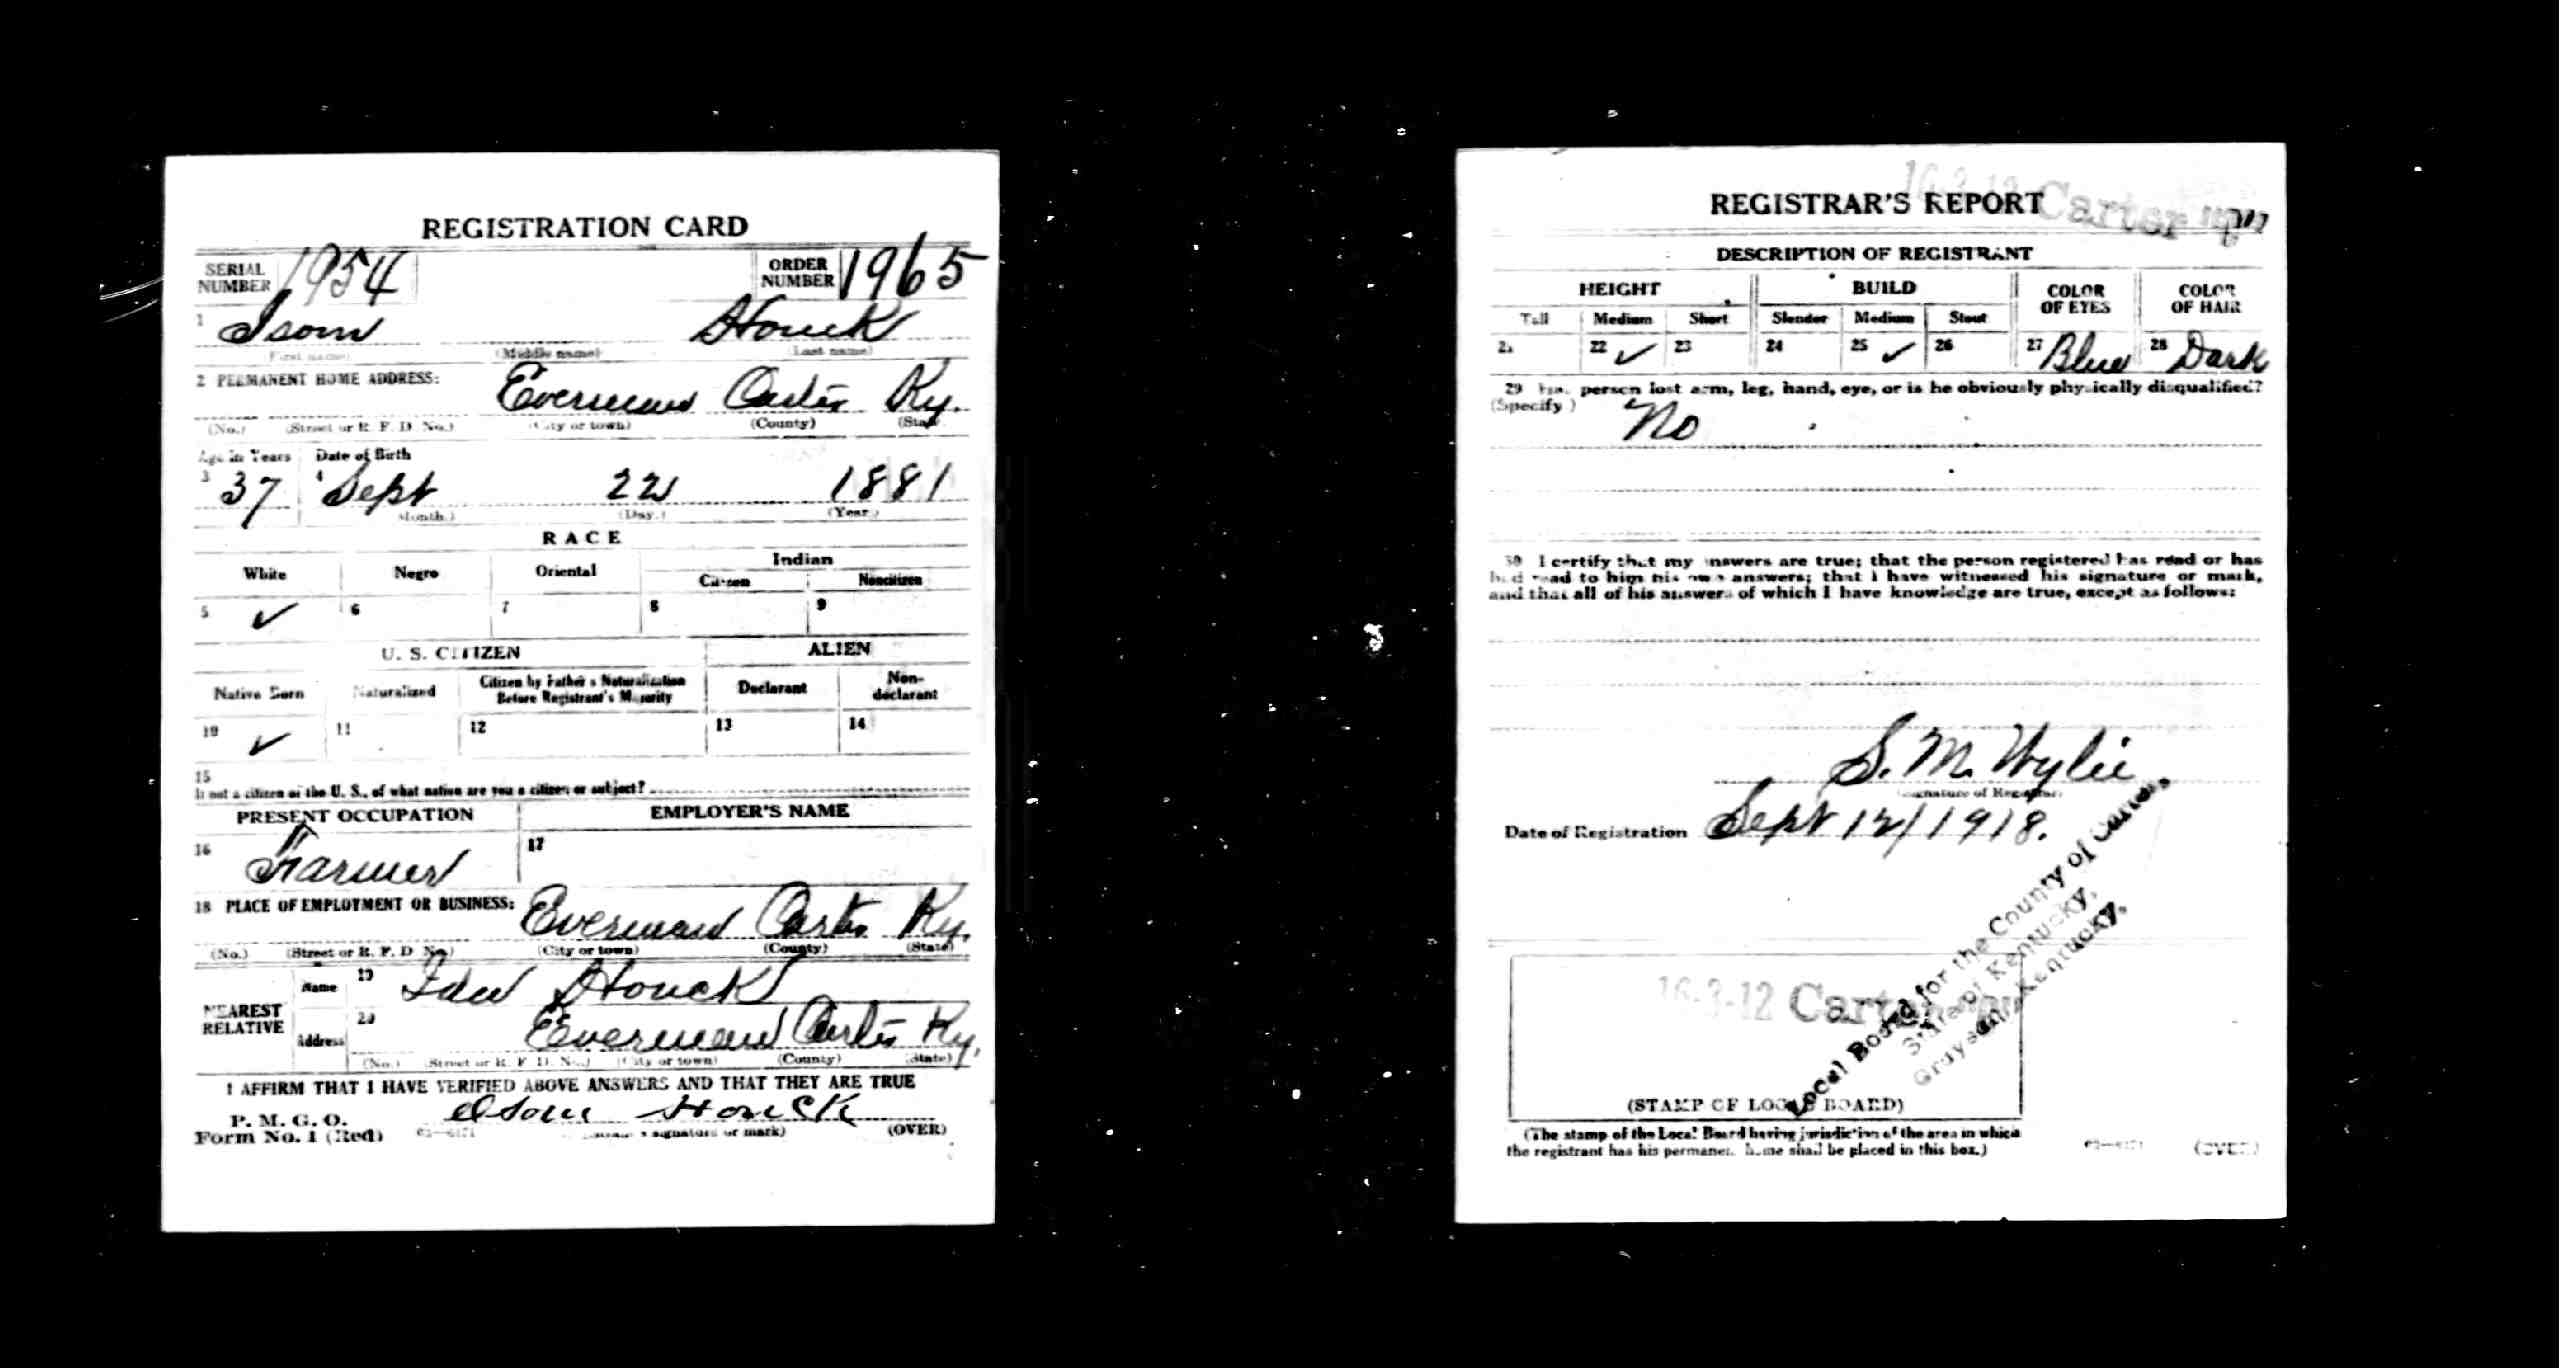 REGISTRATION CARD
SERIAL NUMBER 1954 ORDER NUMBER 1965
1 Isom Houck
(First name) (Middle name) (Last name)
2 PERMANENT HOME ADDRESS:
Everman Carter Ky.
(No.) (Street or R. F. D. No.) (City or town) (County) (State)
Age in Years Date of Birth
3 37 4 Sept 22 1881
(Month.) (Day.) (Year.)
RACE
White Negro Oriental Indian
Citizen Noncitizen
5 ✓ 6 7 8 9
U. S. CITIZEN ALIEN
Native Born Naturalized Citizen by Father's Naturalization Before Registrant's Majority Declarant Non-declarant
10 ✓ 11 12 13 14
15
If not a citizen of the U. S., of what nation are you a citizen or subject?
PRESENT OCCUPATION EMPLOYER'S NAME
16 Farmer 17
18 PLACE OF EMPLOYMENT OR BUSINESS:
Everman Carter Ky.
(No.) (Street or R. F. D. No.) (City or town) (County) (State)
NEAREST RELATIVE
Name 19 Houck
Address 20 Everman Carter Ky.
(No.) (Street or R. F. D. No.) (City or town) (County) (State)
I AFFIRM THAT I HAVE VERIFIED ABOVE ANSWERS AND THAT THEY ARE TRUE
P. M. G. O.
Form No. 1 (Red) Isom Houck
signature or mark) (OVER)
REGISTRAR'S REPORT
16-3-12 Carter
DESCRIPTION OF REGISTRANT
HEIGHT BUILD COLOR OF EYES COLOR OF HAIR
Tall Medium Short Slender Medium Stout
21 22 ✓ 23 24 25 ✓ 26 27 Blue 28 Dark
29 Has person lost arm, leg, hand, eye, or is he obviously physically disqualified?
(Specify.)
No
30 I certify that my answers are true; that the person registered has read or has
had read to him his own answers; that I have witnessed his signature or mark,
and that all of his answers of which I have knowledge are true, except as follows:
S. M. Wylie
(Signature of Registrar)
Date of Registration Sept 12/1918.
Local Board for the County of Carter,
State of Kentucky,
Grayson, Kentucky.
16-3-12 Carter
(STAMP OF LOCAL BOARD)
(The stamp of the Local Board having jurisdiction of the area in which
the registrant has his permanent home shall be placed in this box.)
(OVER)